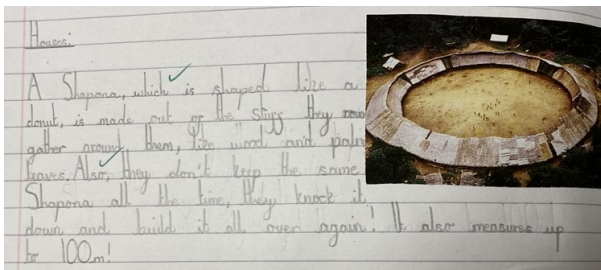 Houses:
A Shapona, which is shaped like a
donut, is made out of the stuff they can
gather around them, like wood and palm
leaves. Also, they don't keep the same
Shapona all the time, they knock it
down and build it all over again! It also measures up
to 100m!